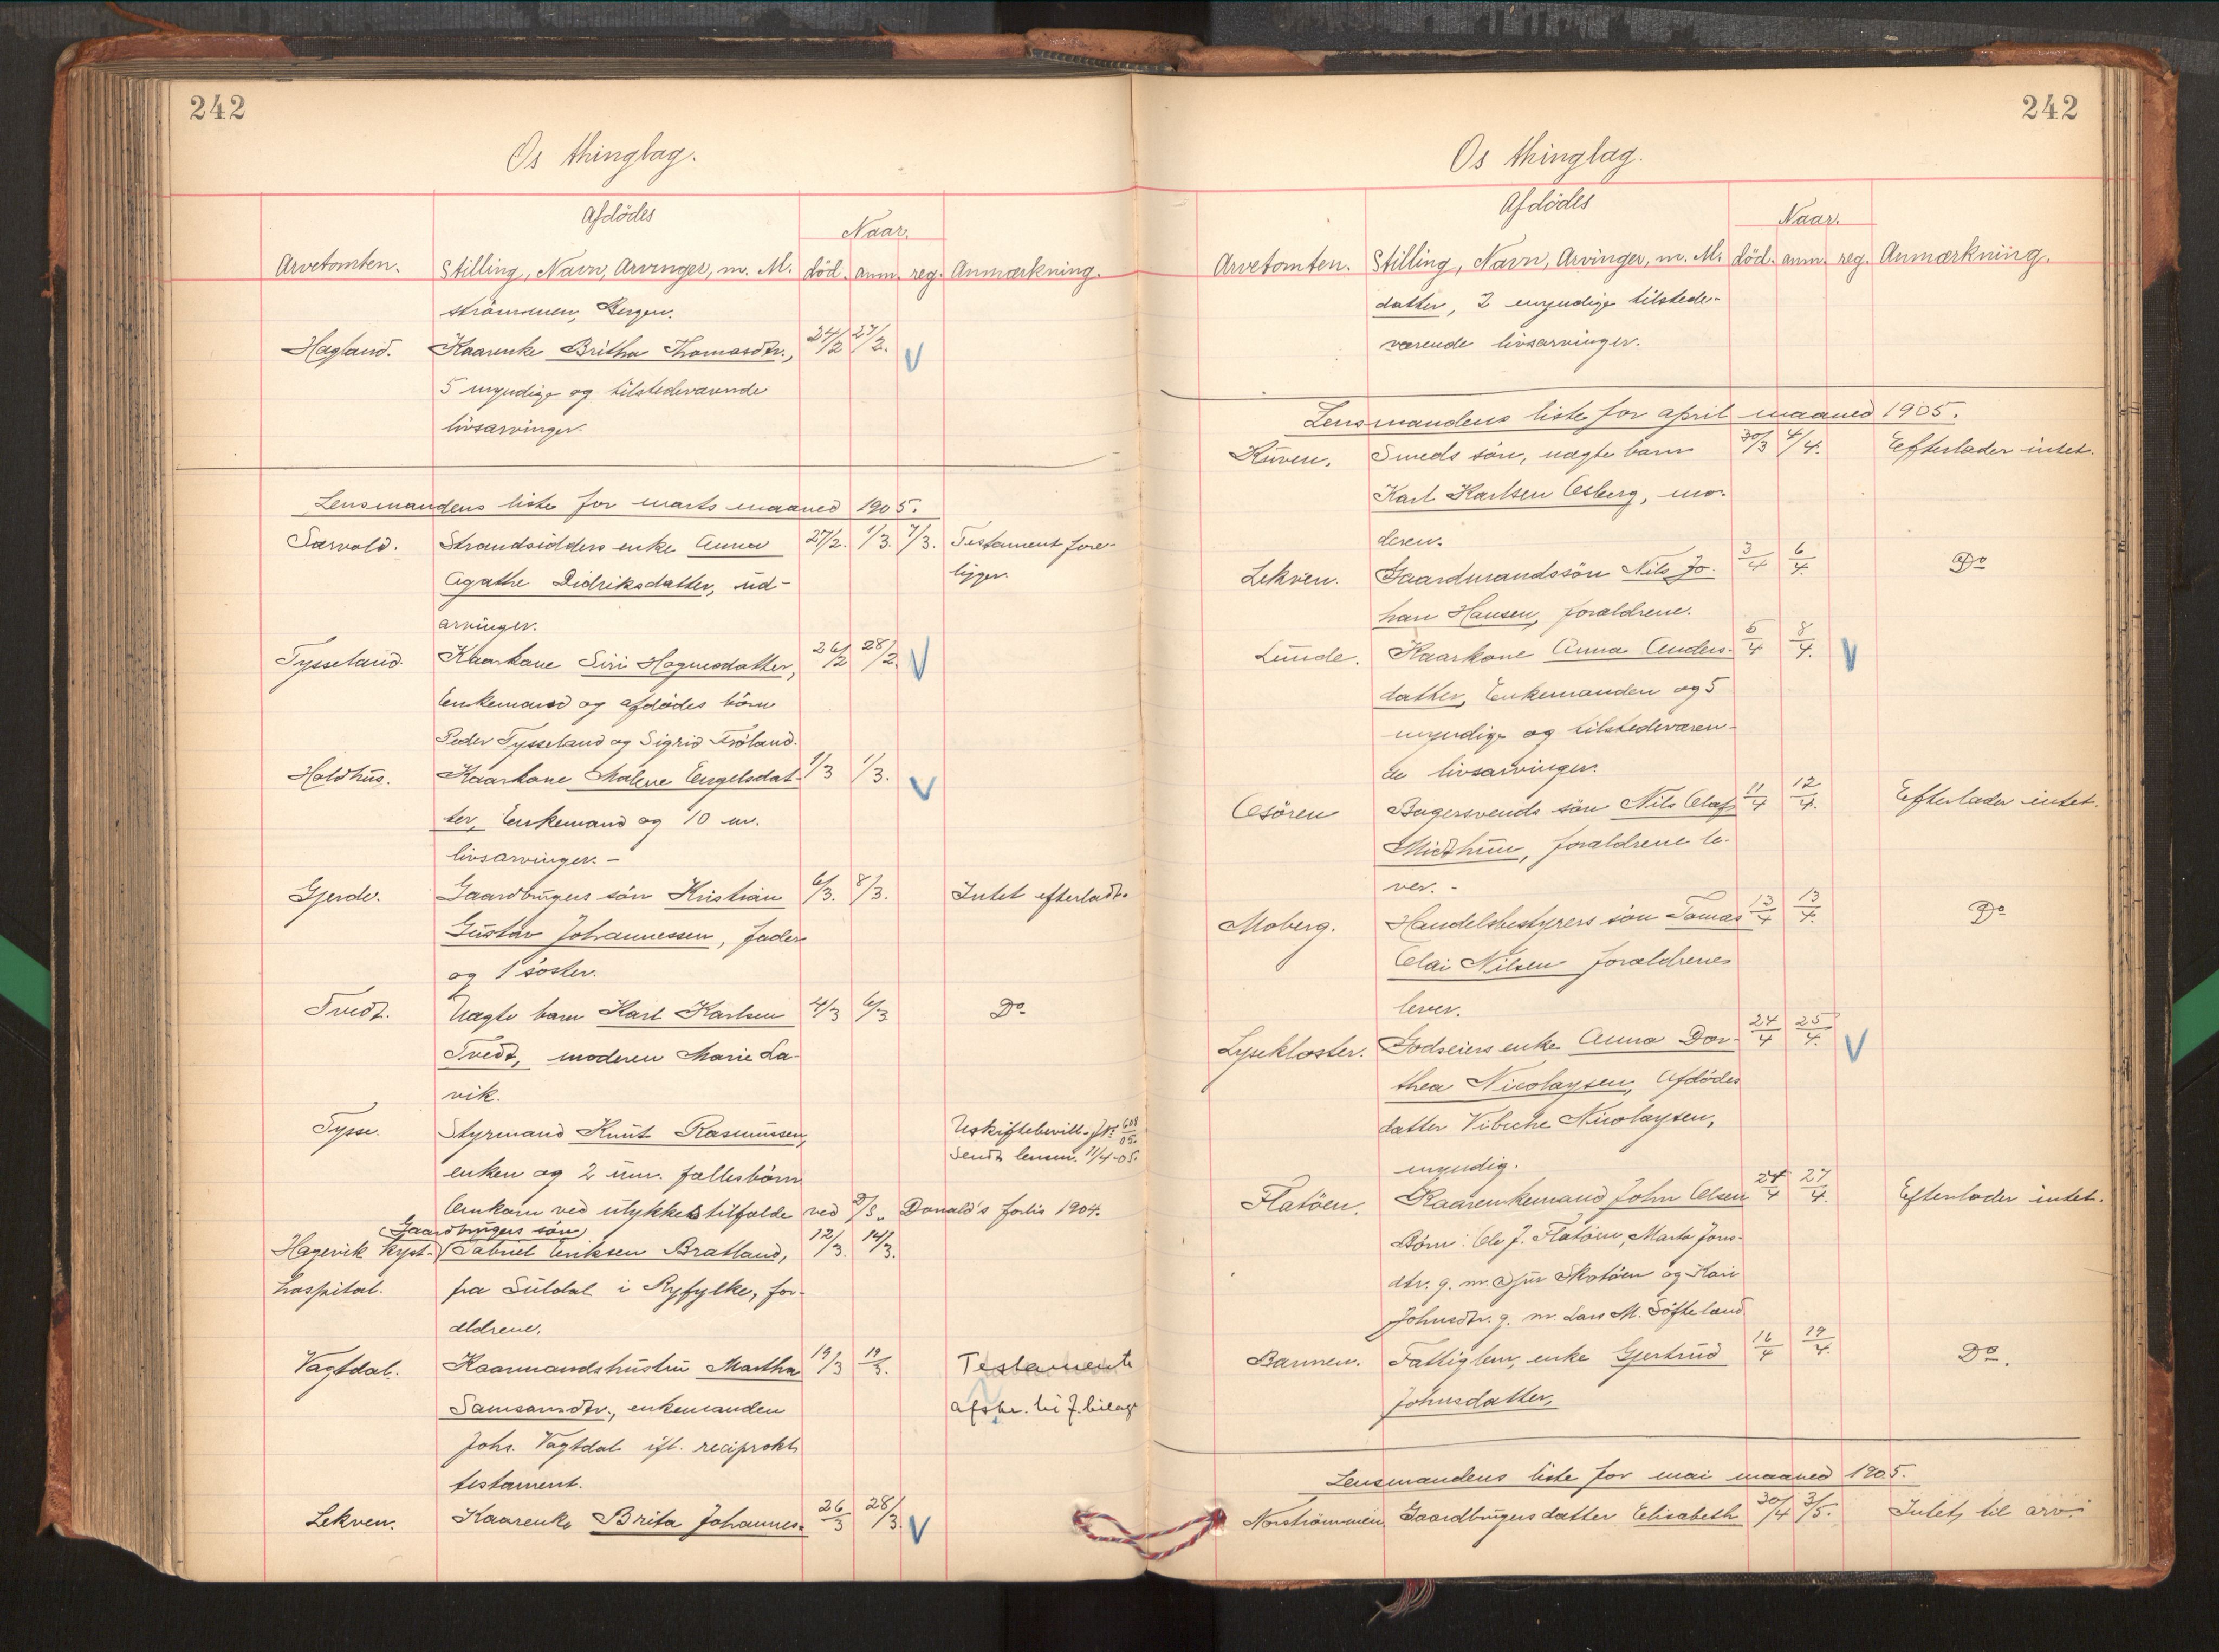 242
Os thinglag.
Afdödes
Naar.
Arvetomten. Stilling, Navn, Arvinger, m. M. död. anm. reg. Anmærkning.
strömmen, Bergen.
Hagland. Kaarenke Britha Thomasdtr., 24/2 27/2. V
5 myndige og tilstedeværende
livsarvinger.
Lensmandens liste for marts maaned 1905.
Sørvold. Strandsidders enke Anna 27/2. 1/3. 7/3. Testament fore-
Agathe Didriksdatter, ud- ligger.
arvinger.
Tysseland. Kaarkone Siri Hagnesdatter, 26/2 28/2. V
Enkemand og afdödes börn
Peder Tysseland og Sigrid Fröland.
Holdhus. Kaarkone Malene Engelsdat- 1/3 1/3. V
ter, Enkemand og 10 m.
livsarvinger. -
Gjerde. Gaardbrugers sön Kristian 6/3. 8/3. Intet efterladt.
Gustav Johannessen, fader
og 1 söster.
Tvedt. Uægte barn Karl Karlsen 4/3 6/3 Do
Tvedt, moderen Marie La-
vik.
Tysse. Styrmand Knut Rasmussen, Uskiftebevill. J.No 608/05.
enken og 2 um. fællesbörn Sendt lensm. 11/4-05.
Omkom ved ulykkestilfælde ved D/S. Donald's forlis 1904.
Gaardbrugers sön
Hagevik kyst- Gabriel Eriksen Bratland, 12/3. 14/3.
hospital. fra Suldal i Ryfylke, for-
ældrene.
Vagtdal. Kaarmandshustru Martha 19/3 19/3. Testamente
Samsonsdtr., enkemanden afskr. til J. bilag
Johs. Vagtdal ifl. reciprokt
testament.
Lekven. Kaarenke Brita Johannes- 26/3 28/3. V
242
Os thinglag.
Afdödes
Naar.
Arvetomten. Stilling, Navn, Arvinger, m. M. död. anm. reg. Anmærkning.
datter, 2 myndige tilstede-
værende livsarvinger.
Lensmandens liste for april maaned 1905.
Kuven. Smeds sön, uægte barn 30/3 4/4. Efterlader intet.
Karl Karlsen Osberg, mo-
deren.
Lekven. Gaardmandssön Nils Jo- 3/4 6/4. Do
han Hansen, forældrene.
Lunde. Kaarkone Anna Anders- 5/4 8/4. V
datter, Enkemanden og 5
myndige og tilstedeværen-
de livsarvinger.
Osören Bagersvends sön Nils Olaf 11/4 12/4. Efterlader intet.
Midthun, forældrene le-
ver. -
Moberg. Handelsbestyrers sön Tomas 13/4 13/4. Do
Olai Nilsen forældrene
lever.
Lysekloster. Godseiers enke Anna Dor- 24/4 25/4. V
thea Nicolaysen, Afdödes
datter Vibeche Nicolaysen,
myndig.
Flatöen. Kaarenkemand John Olsen 24/4 27/4. Efterlader intet.
Börn: Ole J. Flatöen, Marta Jons-
dtr. g. m. Sjur Skotöen og Kari
Johnsdtr. g. m. Lars M. Söfteland.
Barmen. Fattiglem, enke Gjertrud 16/4 19/4. Do.
Johnsdatter,
Lensmandens liste for mai maaned 1905.
Norströmmen. Gaardbrugers datter Elisabeth 30/4 3/5. Intet til arv.